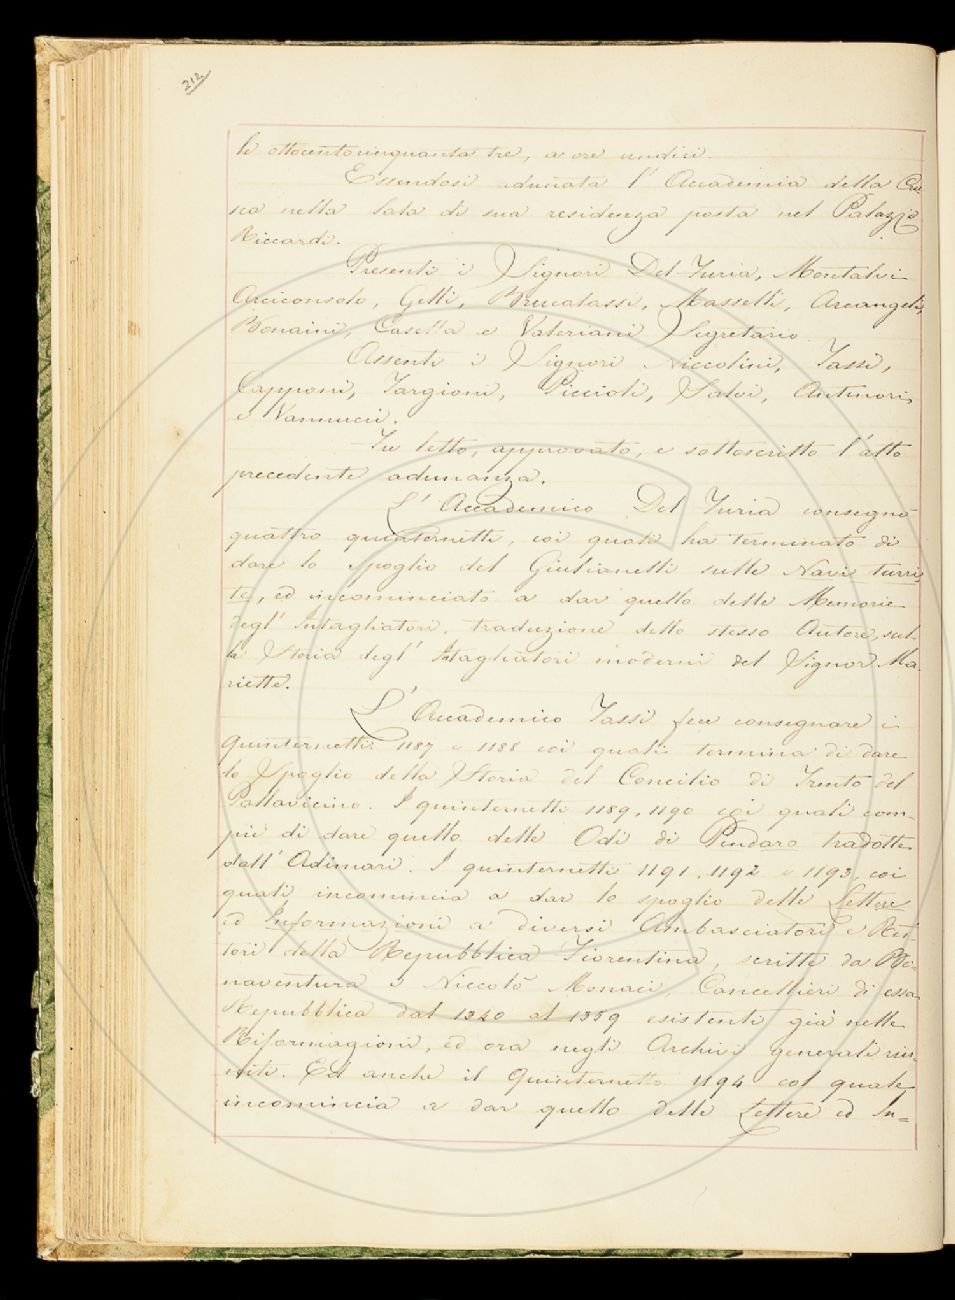 212
le ottocentocinquanta tre, a ore undici.
Essendosi adunata l'Accademia della Cru
sca nella Sala di sua residenza posta nel Palazzo
Riccardi.
Presenti i Signori Del Furia, Montalvi
Arciconsolo, Gelli, Brucalassi, Masselli, Arcangeli,
Bonaini, Casella e Valeriani Segretario.
Assenti i Signori Niccolini, Tassi,
Capponi, Targioni, Piccioli, Salvi, Antinori,
e Vannucci.
Fu letto, approvato, e sottoscritto l'atto
precedente adunanza.
L'Accademico Del Furia consegnò
quattro quinternetti, coi quali ha terminato di
dare lo Spoglio del Giulianelli sulle Navi turri
te, ed incominciato a dar quello delle Memorie
degl'Intagliatori, traduzione dello stesso Autore, sul-
la Storia degl'Intagliatori moderni del Signor Ma
riette.
L'Accademico Tassi fece consegnare i
Quinternetti 1187 e 1188 coi quali termina di dare
lo Spoglio della Storia del Concilio di Trento del
Pallavicino. I quinternetti 1189, 1190 coi quali com-
piè di dare quello delle Odi di Pindaro tradotte
dall'Adimari. I quinternetti 1191, 1192 e 1193, coi
quali incomincia a dar lo spoglio delle Lettere
ed Informazioni a diversi Ambasciatori e Ret-
tori della Repubblica Fiorentina, scritte da Bo-
naventura e Niccolò Monaci, Cancellieri di essa
Repubblica dal 1340 al 1359 esistenti già nelle
Riformagioni, ed ora negli Archivi generali riu-
niti. Ed anche il Quinternetto 1194 col quale
incomincia a dar quello delle Lettere ed In=